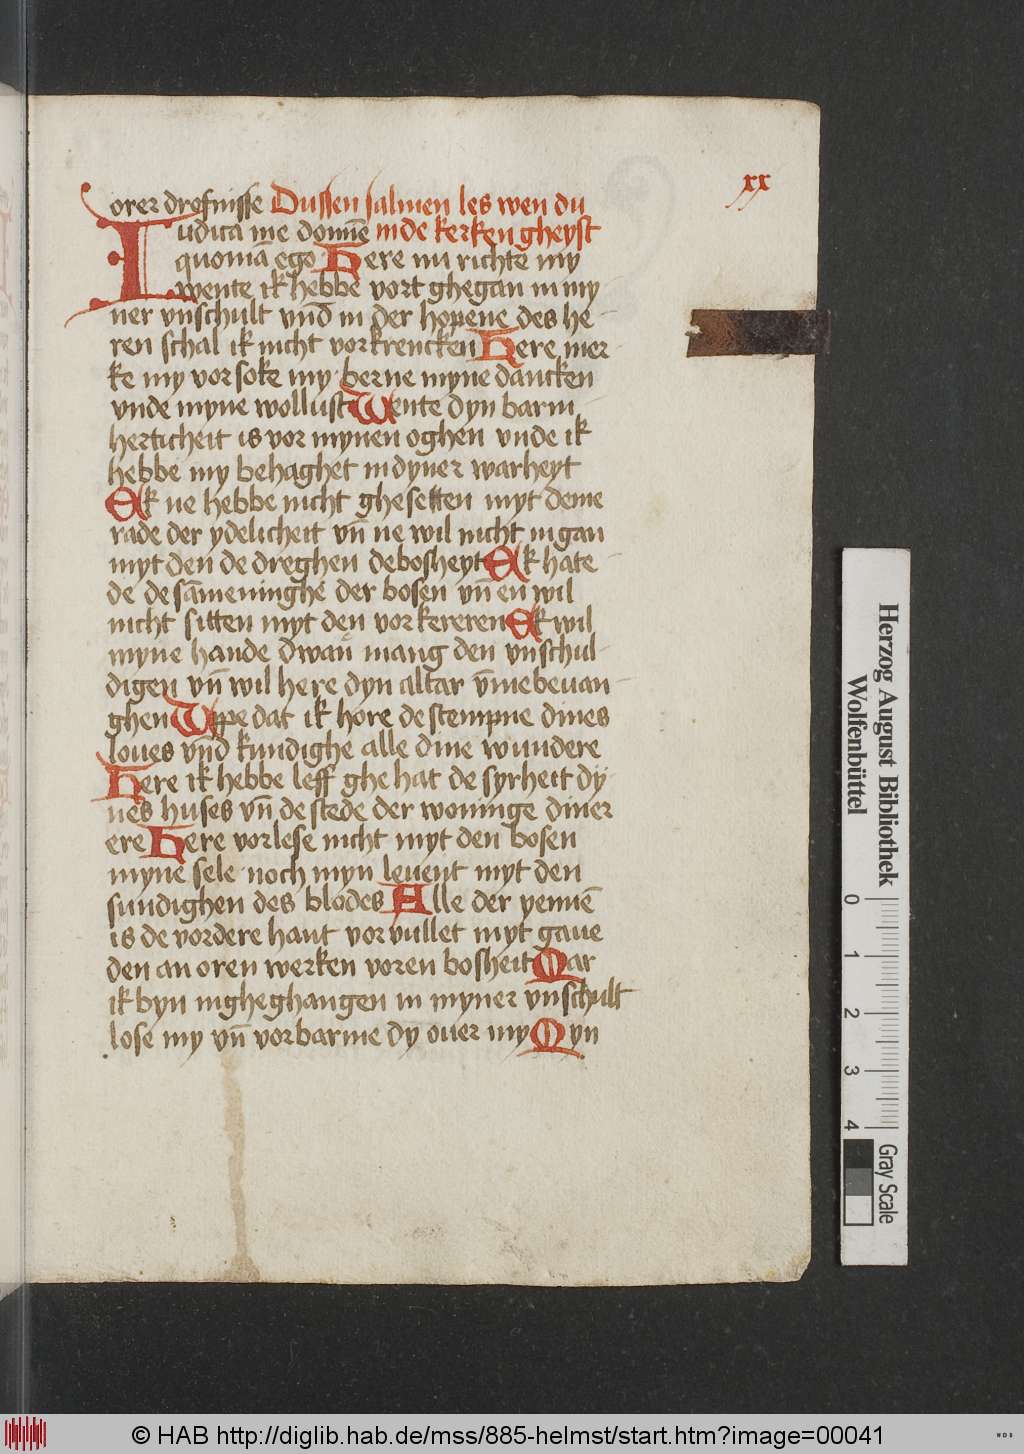 xx
orer drofnisse Dussen salmen les wen du
Iudica me domine in de kerken gheyst
quoniā ego Here nu richte my
wente ik hebbe vort ghegan in my
ner vnschult vnd in der hopene des he-
ren schal ik nicht vorkrencken Here mer-
ke my vorsoke my berne myne dancken
vnde myne wollust Wente dyn barm-
herticheit is vor mynen oghen vnde ik
hebbe my behaghet in dyner warheyt
Ek ne hebbe nicht ghesetten myt deme
rade der ydelicheit vn̄ ne wil nicht ingan
myt den de dreghen de bosheyt Ek hate-
de de sāmeninghe der bosen vn̄ en wil
nicht sitten myt den vorkereren Ek wil
myne hande dwan mang den vnschul-
digen vn̄ wil here dyn altar v̄mebevan-
ghen Uppe dat ik hore de stempne dines
loues vnd kundighe alle dine wundere
Here ik hebbe leff ghehat de syrheit dy-
nes huses vn̄ de stede der woninge diner
ere Here vorlese nicht myt den bosen
myne sele noch myn leuent myt den
sundighen des blodes Alle der yennē
is de vordere hant vorvullet myt gaue
den an oren werken voren bosheit Mar
ik byn ingheghangen in myner vnschult
lose my vn̄ vorbarme dy ouer my Myn
Herzog August Bibliothek
Wolfenbüttel
0 1 2 3 4
Gray Scale
© HAB http://diglib.hab.de/mss/885-helmst/start.htm?image=00041
WDB